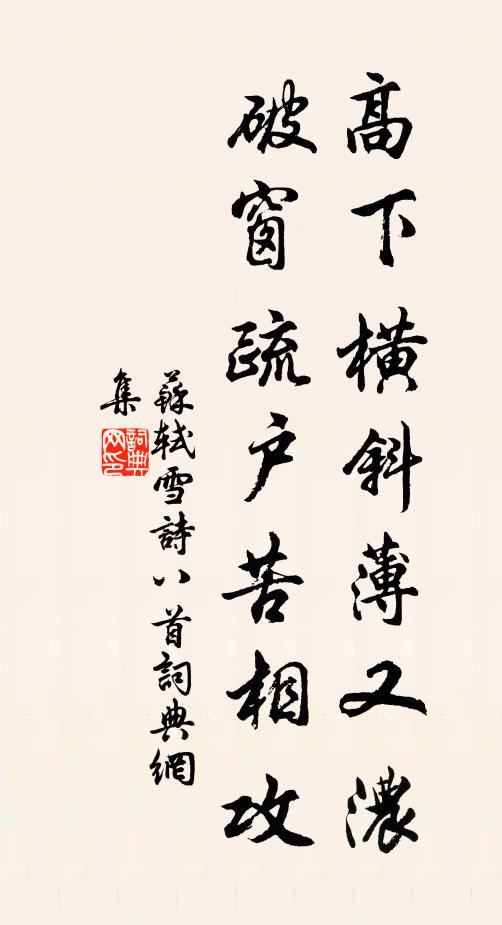 高下橫斜薄又濃
破窗疏户苦相攻
蘇軾雪詩八首詞典網
集
詞典網印